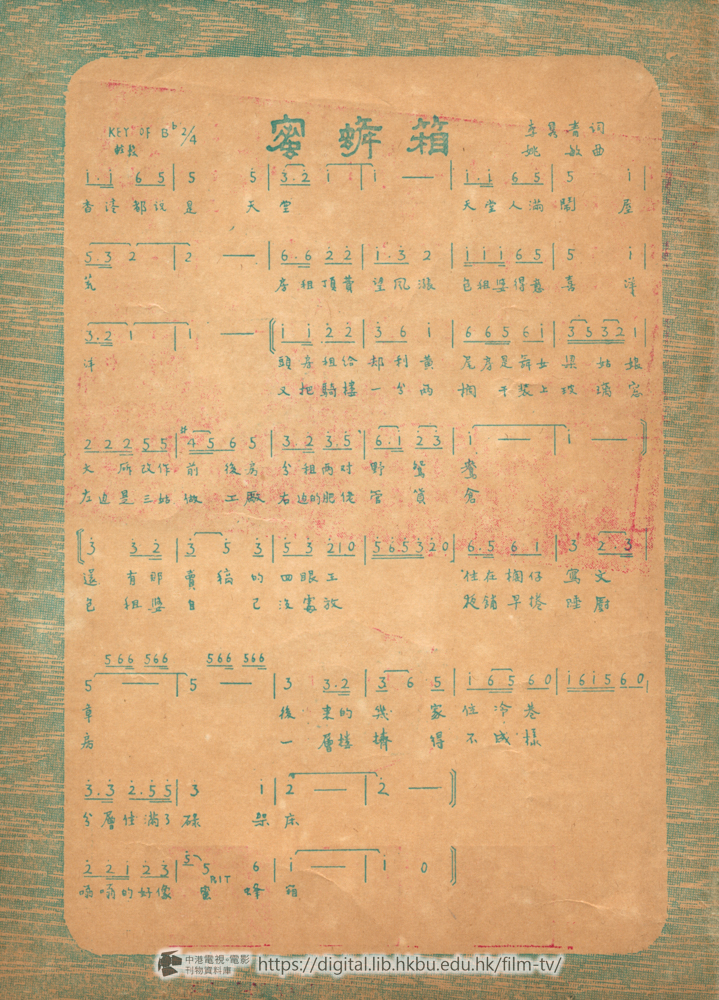 KEY OF B♭ 2/4
蜜蜂箱
李易青词
姚敏曲
1·1 6 5 | 5 5 | 3·2 1 | 1 — | 1·1 6 5 | 5 1 |
香港都说是 天堂 天堂人滿鬧屋
5·3 2 | 2 — | 6·6 2 2 | 1·3 2 | 1 1 1 6 5 | 5 1 |
荒 房租頂費望風漲 包租婆得意喜洋
3·2 1 | 1 — | 1 1 2 2 | 3 6 1 | 6 6 5 6 1 | 3 5 3 2 1 |
洋 頭房租给郝利黄 尾房是舞女梁姑娘
又把騎樓一分两 欄干裝上玻璃窓
2 2 2 5 5 | #4 5 6 5 | 3·2 3 5 | 6·1 2 3 | 1 — | 1 — |
大所改作前後房 分租两对野鴛鴦
左边是三姑做工廠 右边的肥佬管貨倉
3 3 2 | 3 5 3 | 5 3 2 1 0 | 5 6·5 3 2 0 | 6·5 6 1 | 3 2·3 |
還有那賣稿的四眼王 住在欄仔寫文
包租婆自己没處放 板铺早搭睡厨
5 6 6 5 6 6 5 6 6 5 6 6
5 — | 5 — | 3 3·2 | 3 6 5 | 1 6 5 6 0 | 1 6 1 5 6 0 |
章 後来的幾家住冷巷
房 一層樓擠得不成樣
3·3 2·5 5 | 3 1 | 2 — | 2 — |
分層住滿了碌架床
2 2 1 2 3 | 5 5 6 | 1 — | 1 0 |
RIT
嗡嗡的好像蜜蜂箱
中港電視·電影
刊物資料庫
https://digital.lib.hkbu.edu.hk/film-tv/